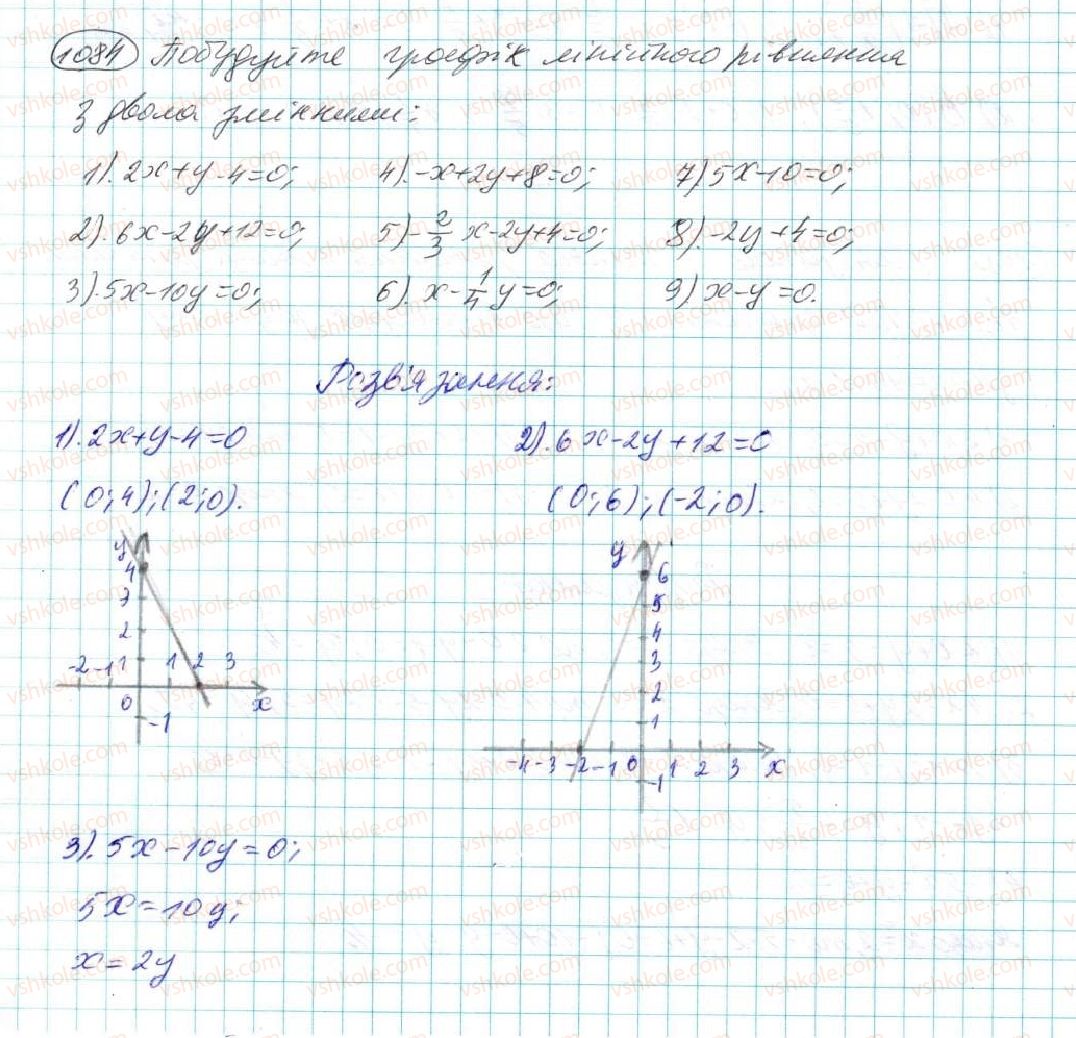 1084 Побудуйте графік лінійного рівняння
з двома змінними:
1). 2x+y-4=0; 4). -x+2y+8=0; 7) 5x-10=0;
2). 6x-2y+12=0; 5) -2/3 x-2y+4=0; 8). -2y+4=0;
3). 5x-10y=0; 6). x-1/4 y=0; 9) x-y=0.
Розв'язання:
1). 2x+y-4=0 2). 6x-2y+12=0
(0;4);(2;0). (0;6);(-2;0).
y
4
3
2
-2 -1 1 1 2 3
0 x
-1
y
6
5
4
3
2
1
-4 -3 -2 -1 0 1 2 3 x
-1
3). 5x-10y=0;
5x=10y;
x=2y
vshkole.com